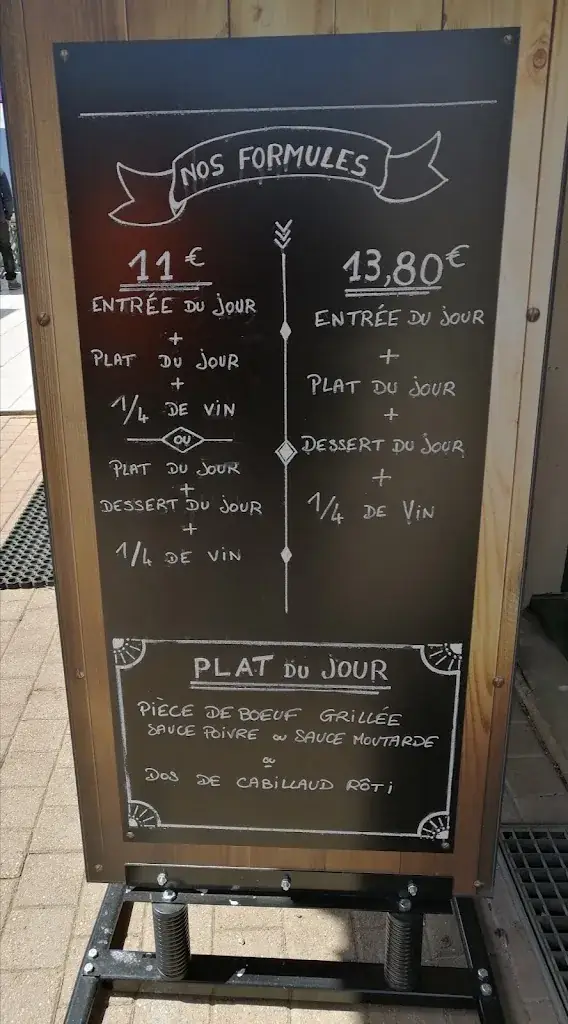 NOS FORMULES
11€
ENTRÉE DU JOUR
+
PLAT DU JOUR
+
1/4 DE VIN
OU
PLAT DU JOUR
+
DESSERT DU JOUR
+
1/4 DE VIN
13,80€
ENTRÉE DU JOUR
+
PLAT DU JOUR
+
DESSERT DU JOUR
+
1/4 DE VIN
PLAT DU JOUR
PIÈCE DE BOEUF GRILLÉE
SAUCE POIVRE OU SAUCE MOUTARDE
OU
DOS DE CABILLAUD RÔTI